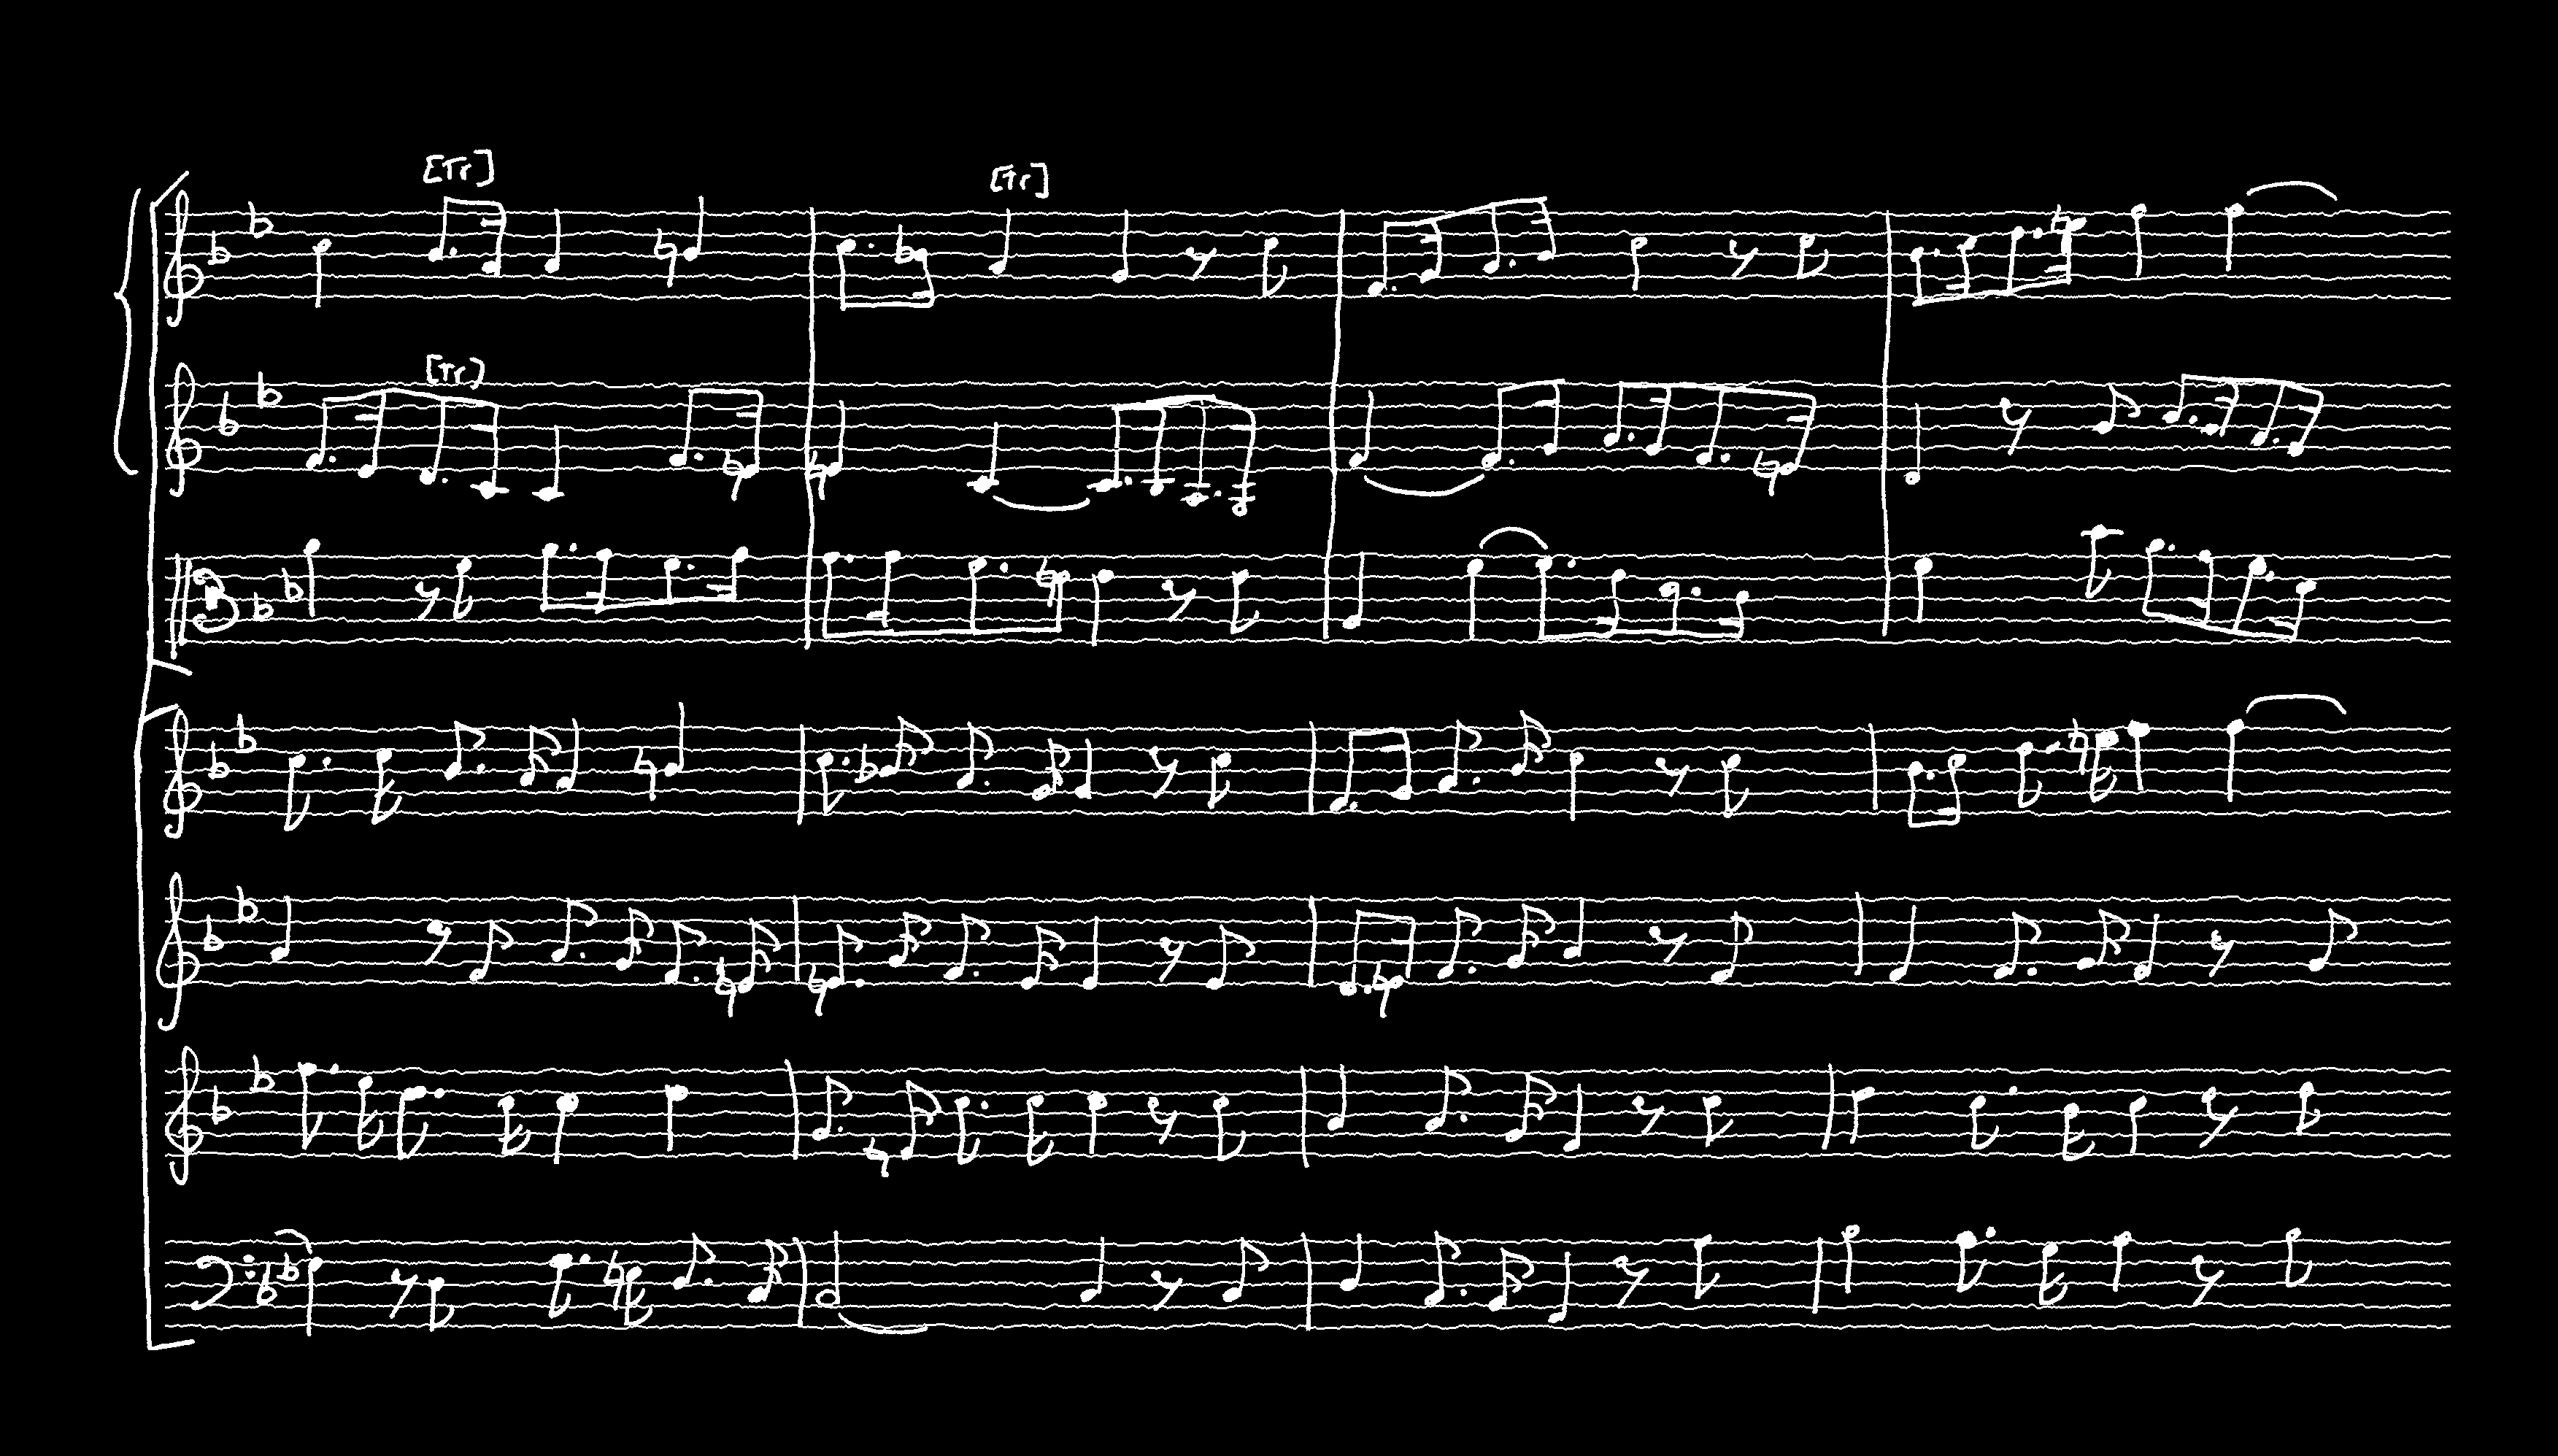 [Tr]
[Tr]
[Tr]